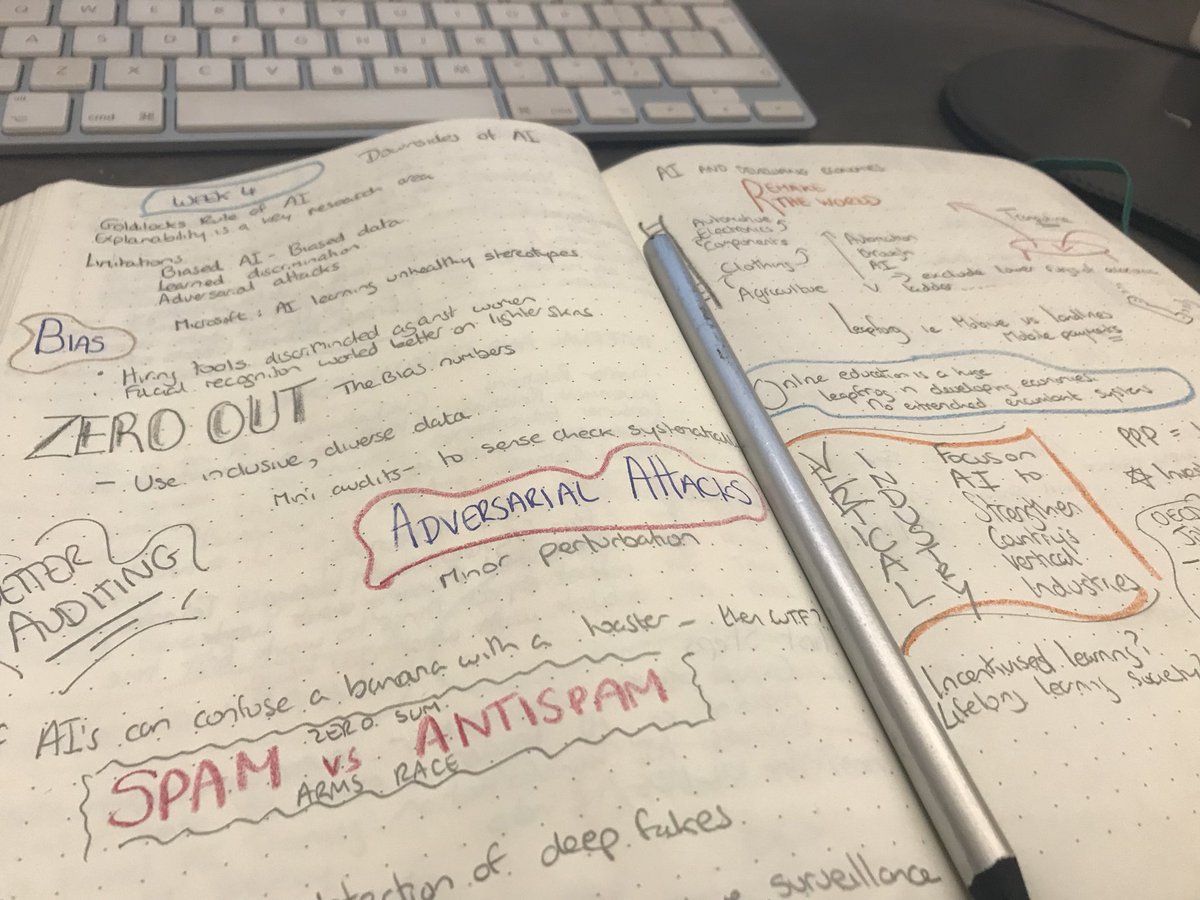 WEEK 4
Downsides of AI
Goldilocks Rule of AI
Explanability is a key research area
Limitations
Biased AI - Biased data
Learned discrimination
Adversarial attacks
Microsoft: AI learning unhealthy stereotypes
BIAS
• Hiring tools discriminated against women
Facial recognition worked better on lighter skins
ZERO OUT The Bias numbers
- Use inclusive, diverse data
Mini audits - to sense check systematically
BETTER
AUDITING
ADVERSARIAL ATTACKS
Minor perturbation
AI's can confuse a banana with a toaster - then WTF?
ZERO SUM
SPAM vs ANTISPAM
ARMS RACE
of deep fakes
surveillance
AI AND DEVELOPING ECONOMIES
REMAKE
THE WORLD
Automotive
Electronics
Components
Clothing
Agriculture
Trampoline
Automation
through
AI
exclude lower rungs of
ladder
Leapfrog ie Mobile vs landlines
Mobile payments
Online education is a huge
leapfrog in developing economies
No entrenched systems
VERTICAL
INDUSTRY
Focus on
AI to
Strengthen
Country's
vertical
Industries
PPP =
OECD
Incentivised learning?
Lifelong learning society?
cmd
Q W E R T Y U I O P
A S D F G H J K L
Z X C V B N M
cmd